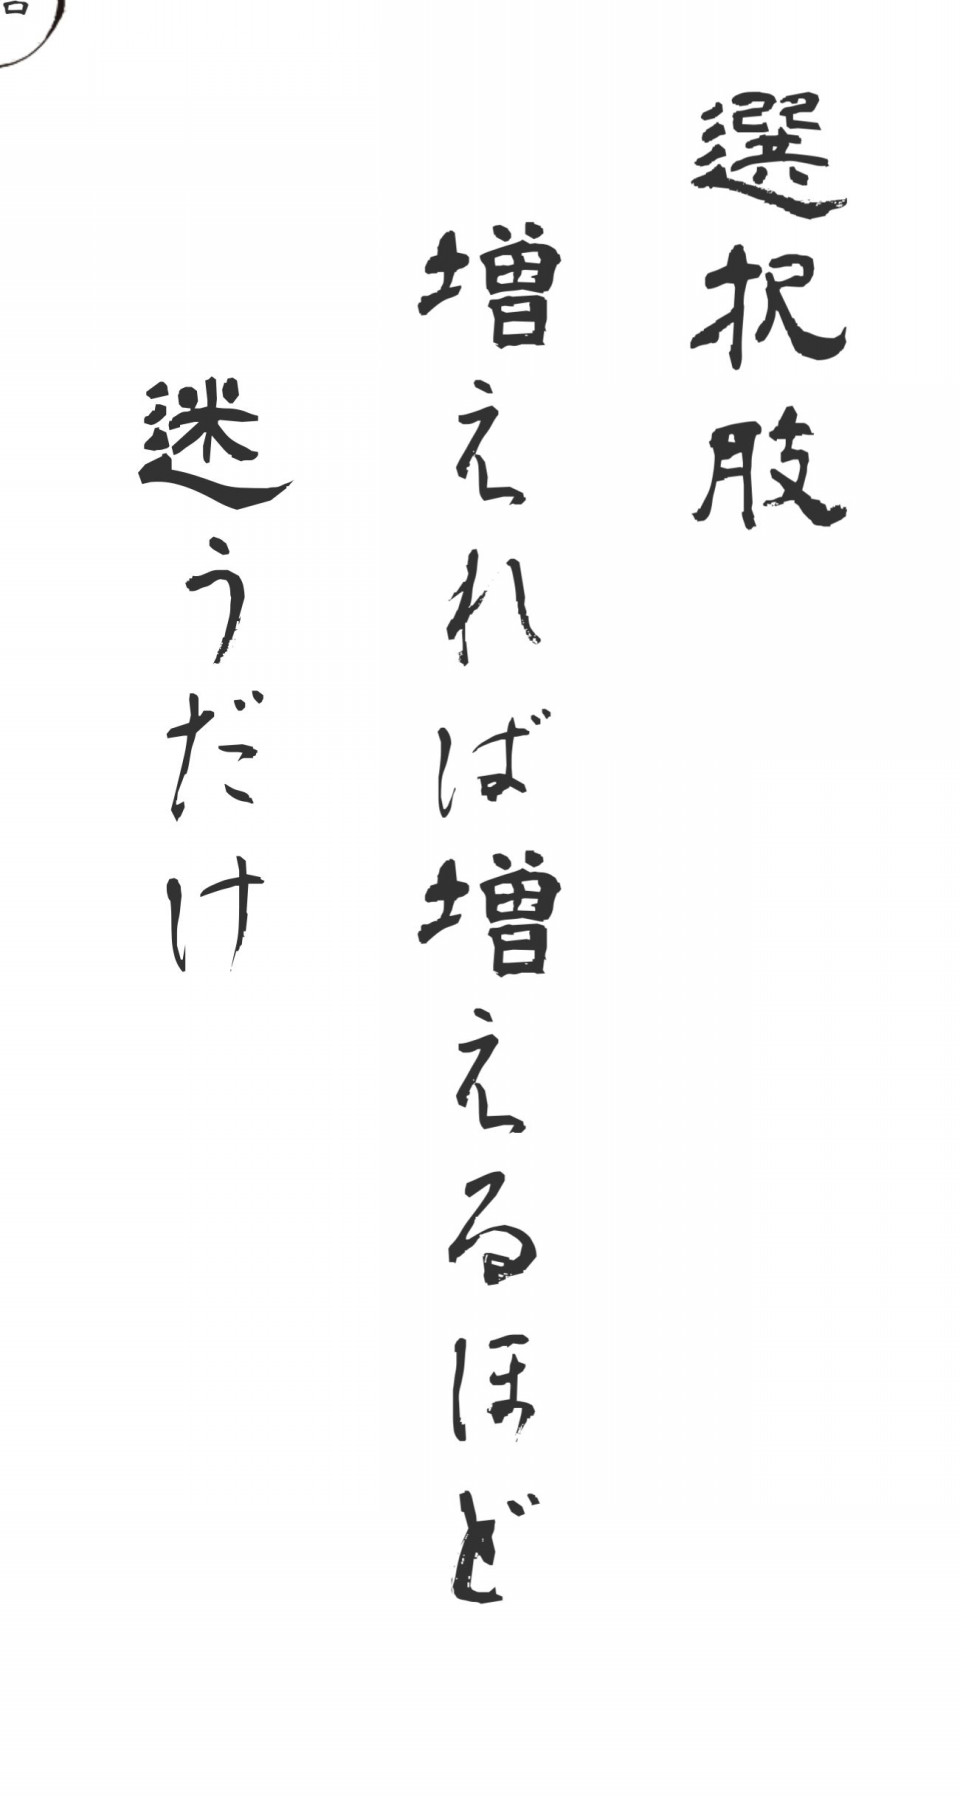 選択肢
増えれば増えるほど
迷うだけ